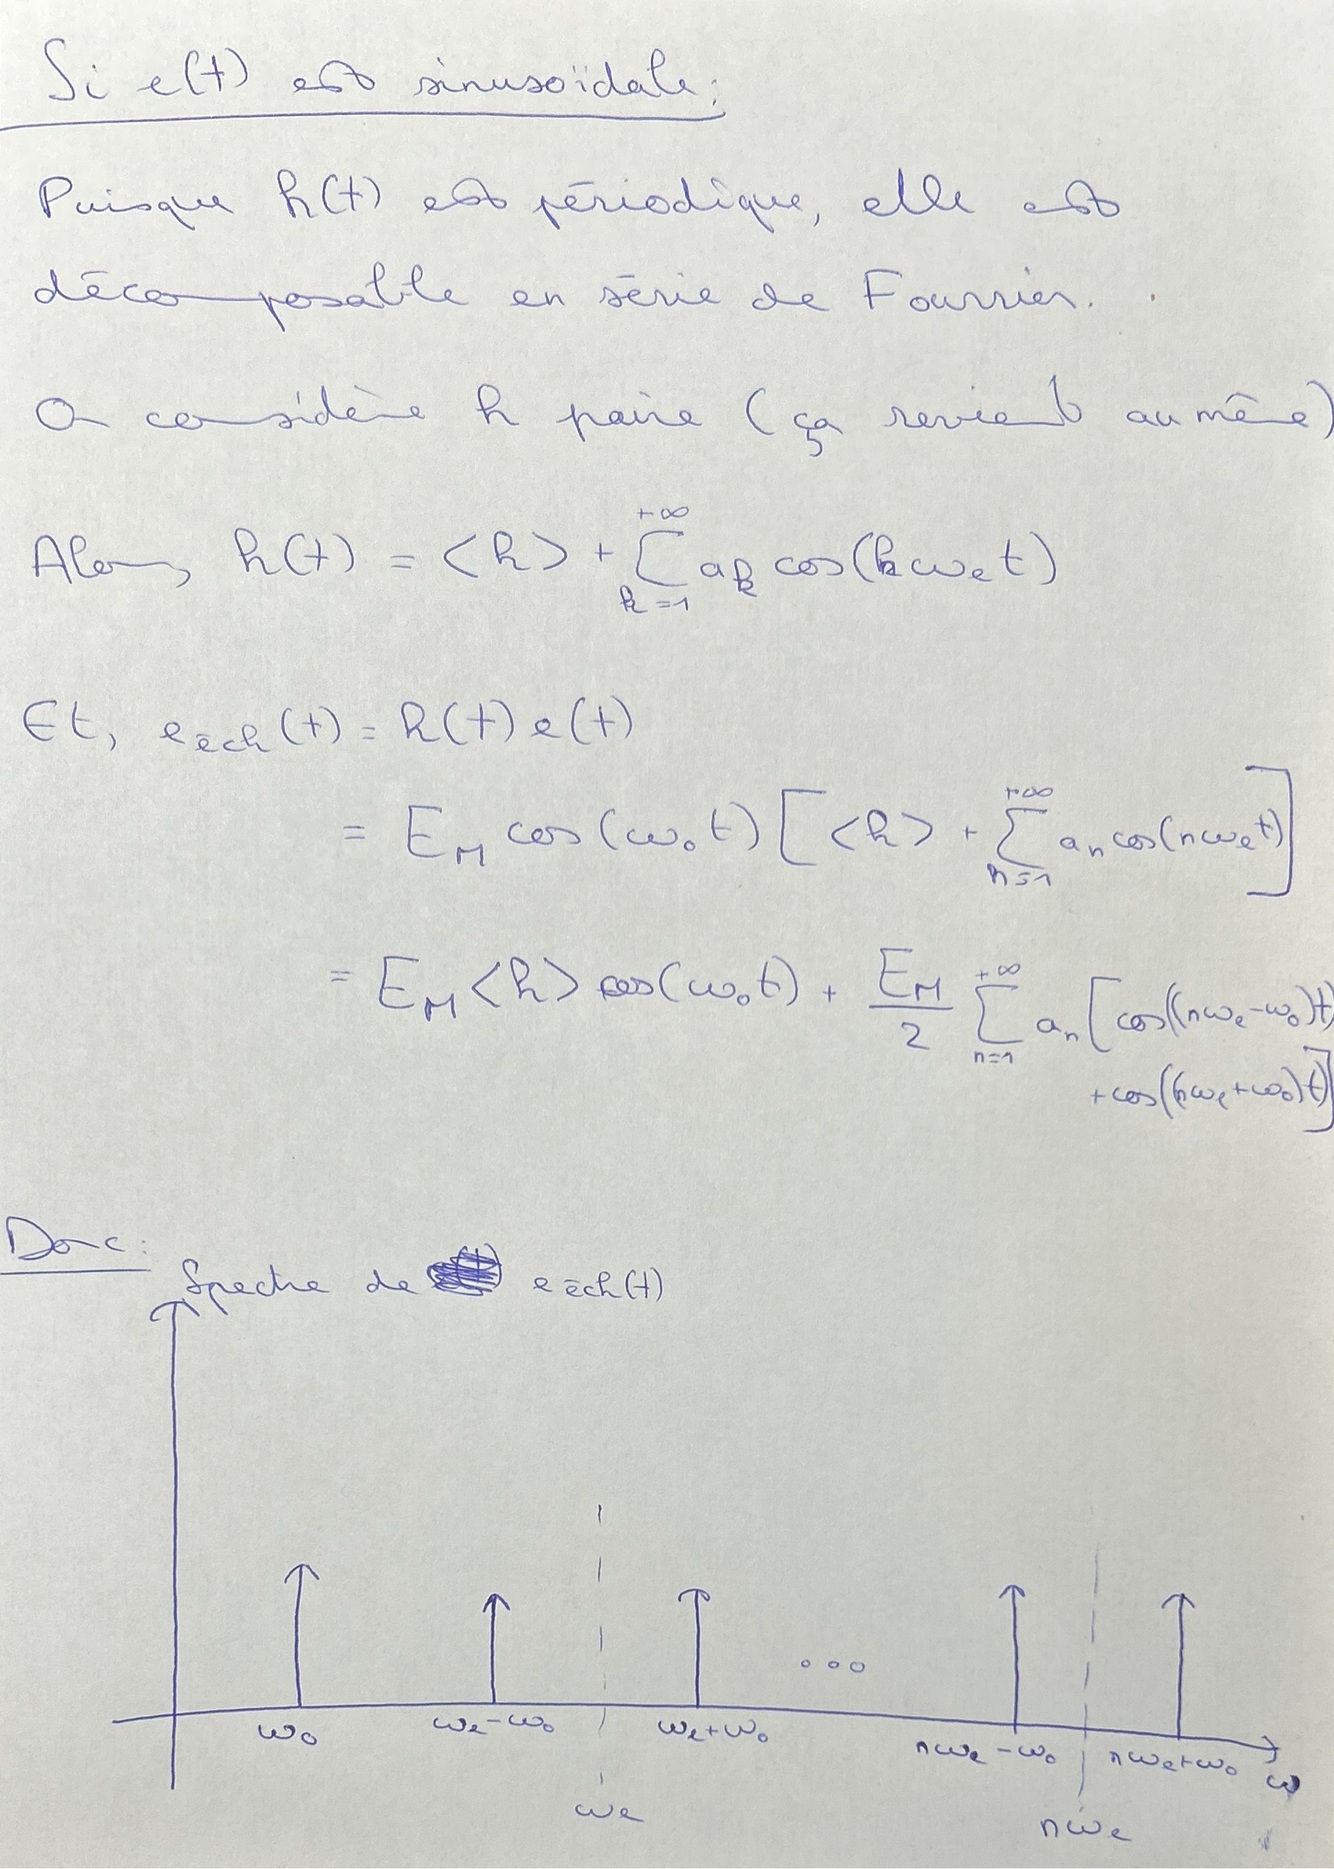 Si e(t) est sinusoïdale:
Puisque h(t) est périodique, elle est
décomposable en série de Fourrier.
On considère h paire (ça revient au même)
Alors, h(t) = <h> + ∑_{k=1}^{+∞} a_k cos(kω_e t)
Et, e_éch(t) = h(t) e(t)
= E_M cos(ω_0 t) [<h> + ∑_{n=1}^{+∞} a_n cos(nω_e t)]
= E_M <h> cos(ω_0 t) + E_M/2 ∑_{n=1}^{+∞} a_n [cos((nω_e-ω_0)t)
+cos((nω_e+ω_0)t)]
Donc:
Spectre de e_éch(t)
...
ω_0 ω_e-ω_0 ω_e+ω_0 nω_e-ω_0 nω_e+ω_0 ω
ω_e nω_e